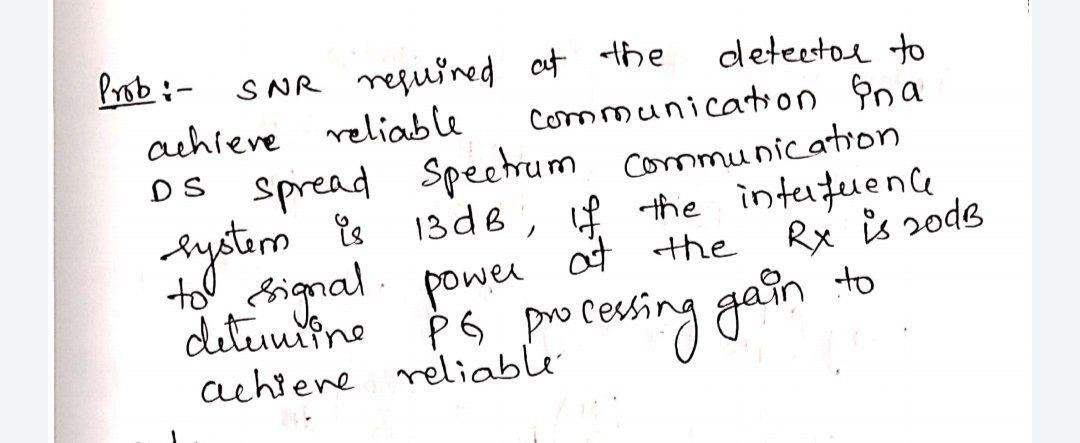 Prob :- SNR required at the detector to
achieve reliable communication in a
DS spread spectrum communication
system is 13dB, if the interference
to signal power at the Rx is 20dB
determine PG processing gain to
achieve reliable.